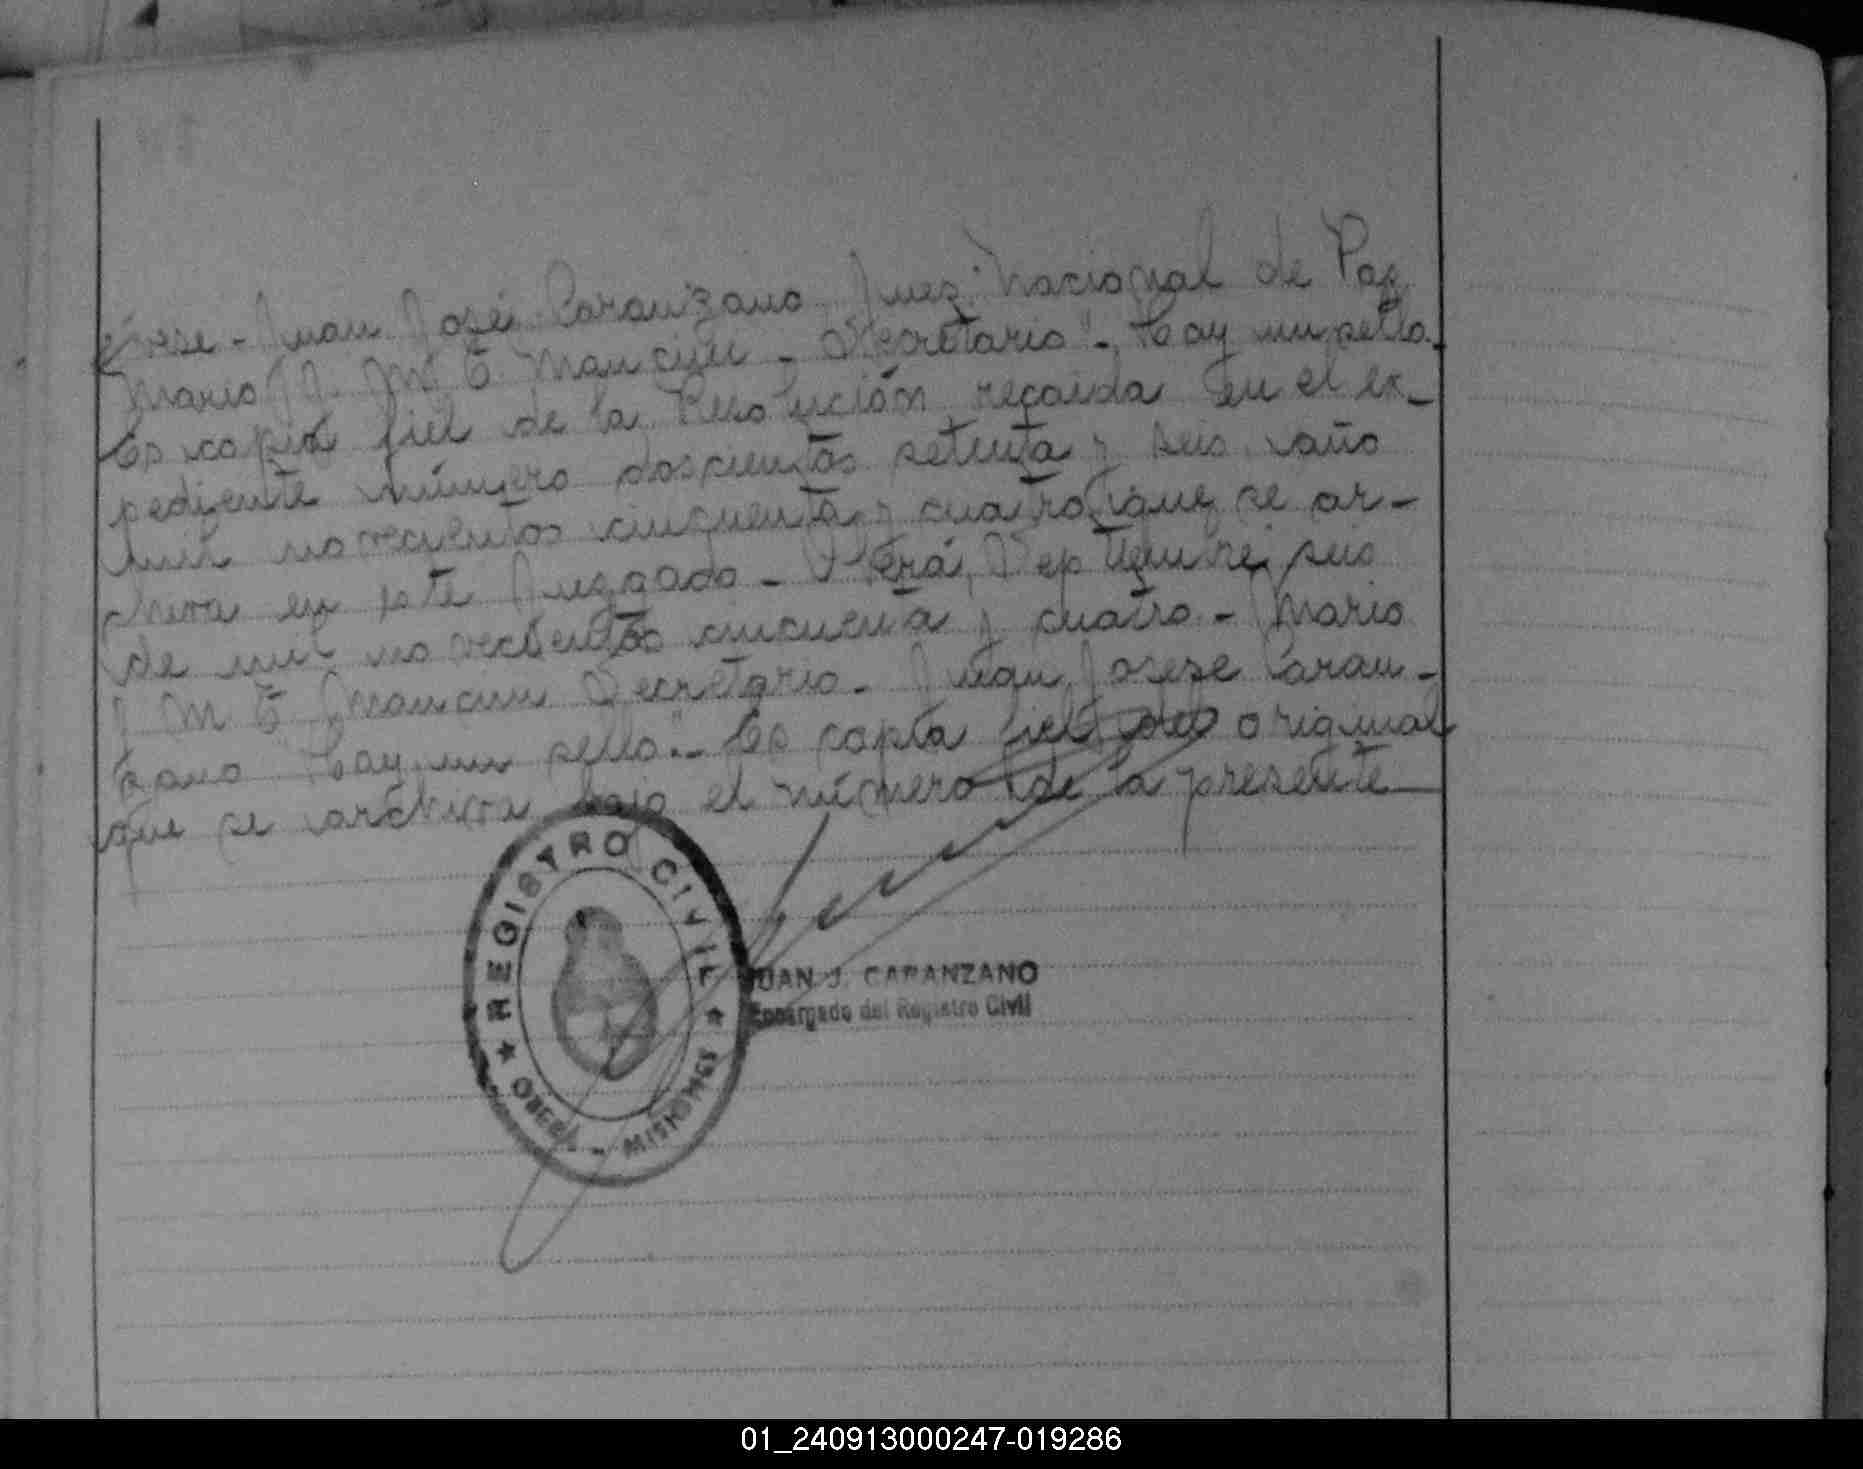 vese - Juan José Caranzano Juez Nacional de Paz
Mario J. M. E. Mancini - Secretario" - Hay un sello.
Es copia fiel de la Resolución recaida en el ex-
pediente número doscientos setenta y seis, año
mil novecientos cincuenta y cuatro, que se ar-
chiva en este Juzgado - Oberá, Septiembre seis
de mil novecientos cincuenta y cuatro - Mario
J M E Mancini Secretario - Juan José Caran-
zano Hay un sello" - Es copia fiel del original
que se archiva bajo el número de la presente
REGISTRO CIVIL
OBERÁ - MISIONES
JUAN J. CARANZANO
Encargado del Registro Civil
01_240913000247-019286